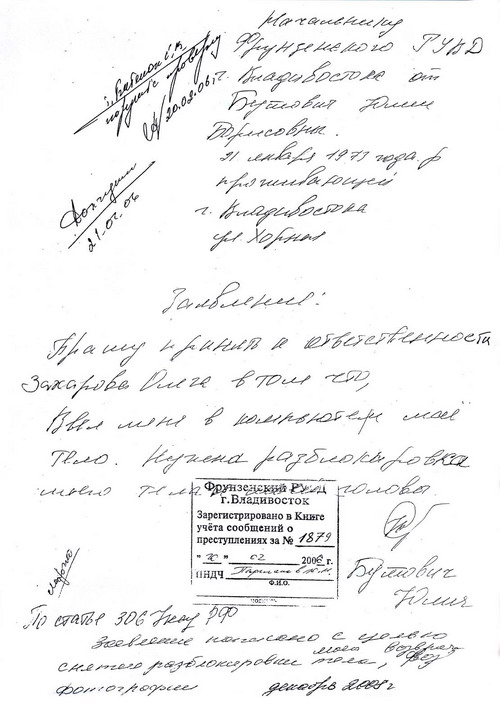 Начальнику
Фрунзенского РУВД
г. Владивостока от
Бутович Юлии
Борисовны.
21 января 1977 года р
проживающей
г. Владивостока
ул. Хорная
20.02.06 г.
21.02.06
Заявление:
Прошу принять к ответственности
Захарова Олега в том что,
Ввёл меня в компьютер моё
тело. Нужна разблокировка
моего тела головы.
Фрунзенский РУВД
г.Владивосток
Зарегистрировано в Книге
учёта сообщений о
преступлениях за № 1879
"20" 02 2006 г.
ПНДЧ
Ф.И.О.
Бутович
Юлия
По статье 306 УК РФ
Заявление написано с целью
снятия разблокировки тела,
фотографии декабрь 2005 г